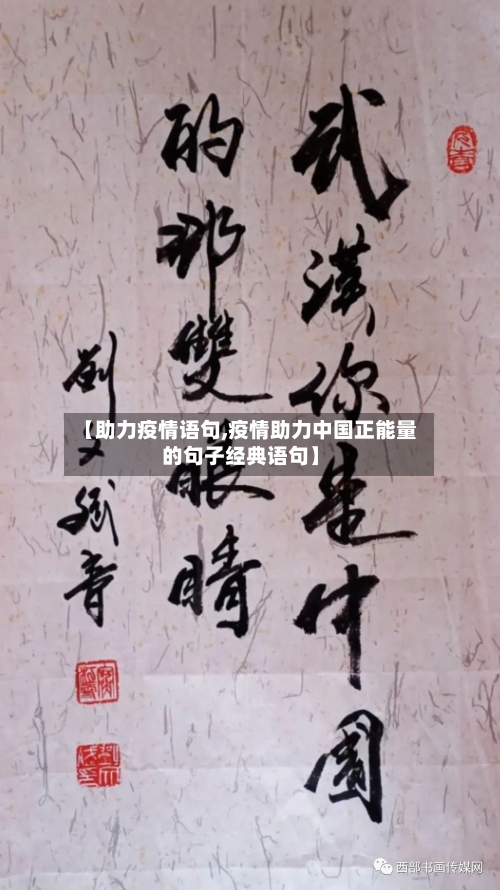 武漢你是中國
的那雙眼睛
劉文斌書
【助力疫情语句,疫情助力中国正能量
的句子经典语句】
西部书画传媒网